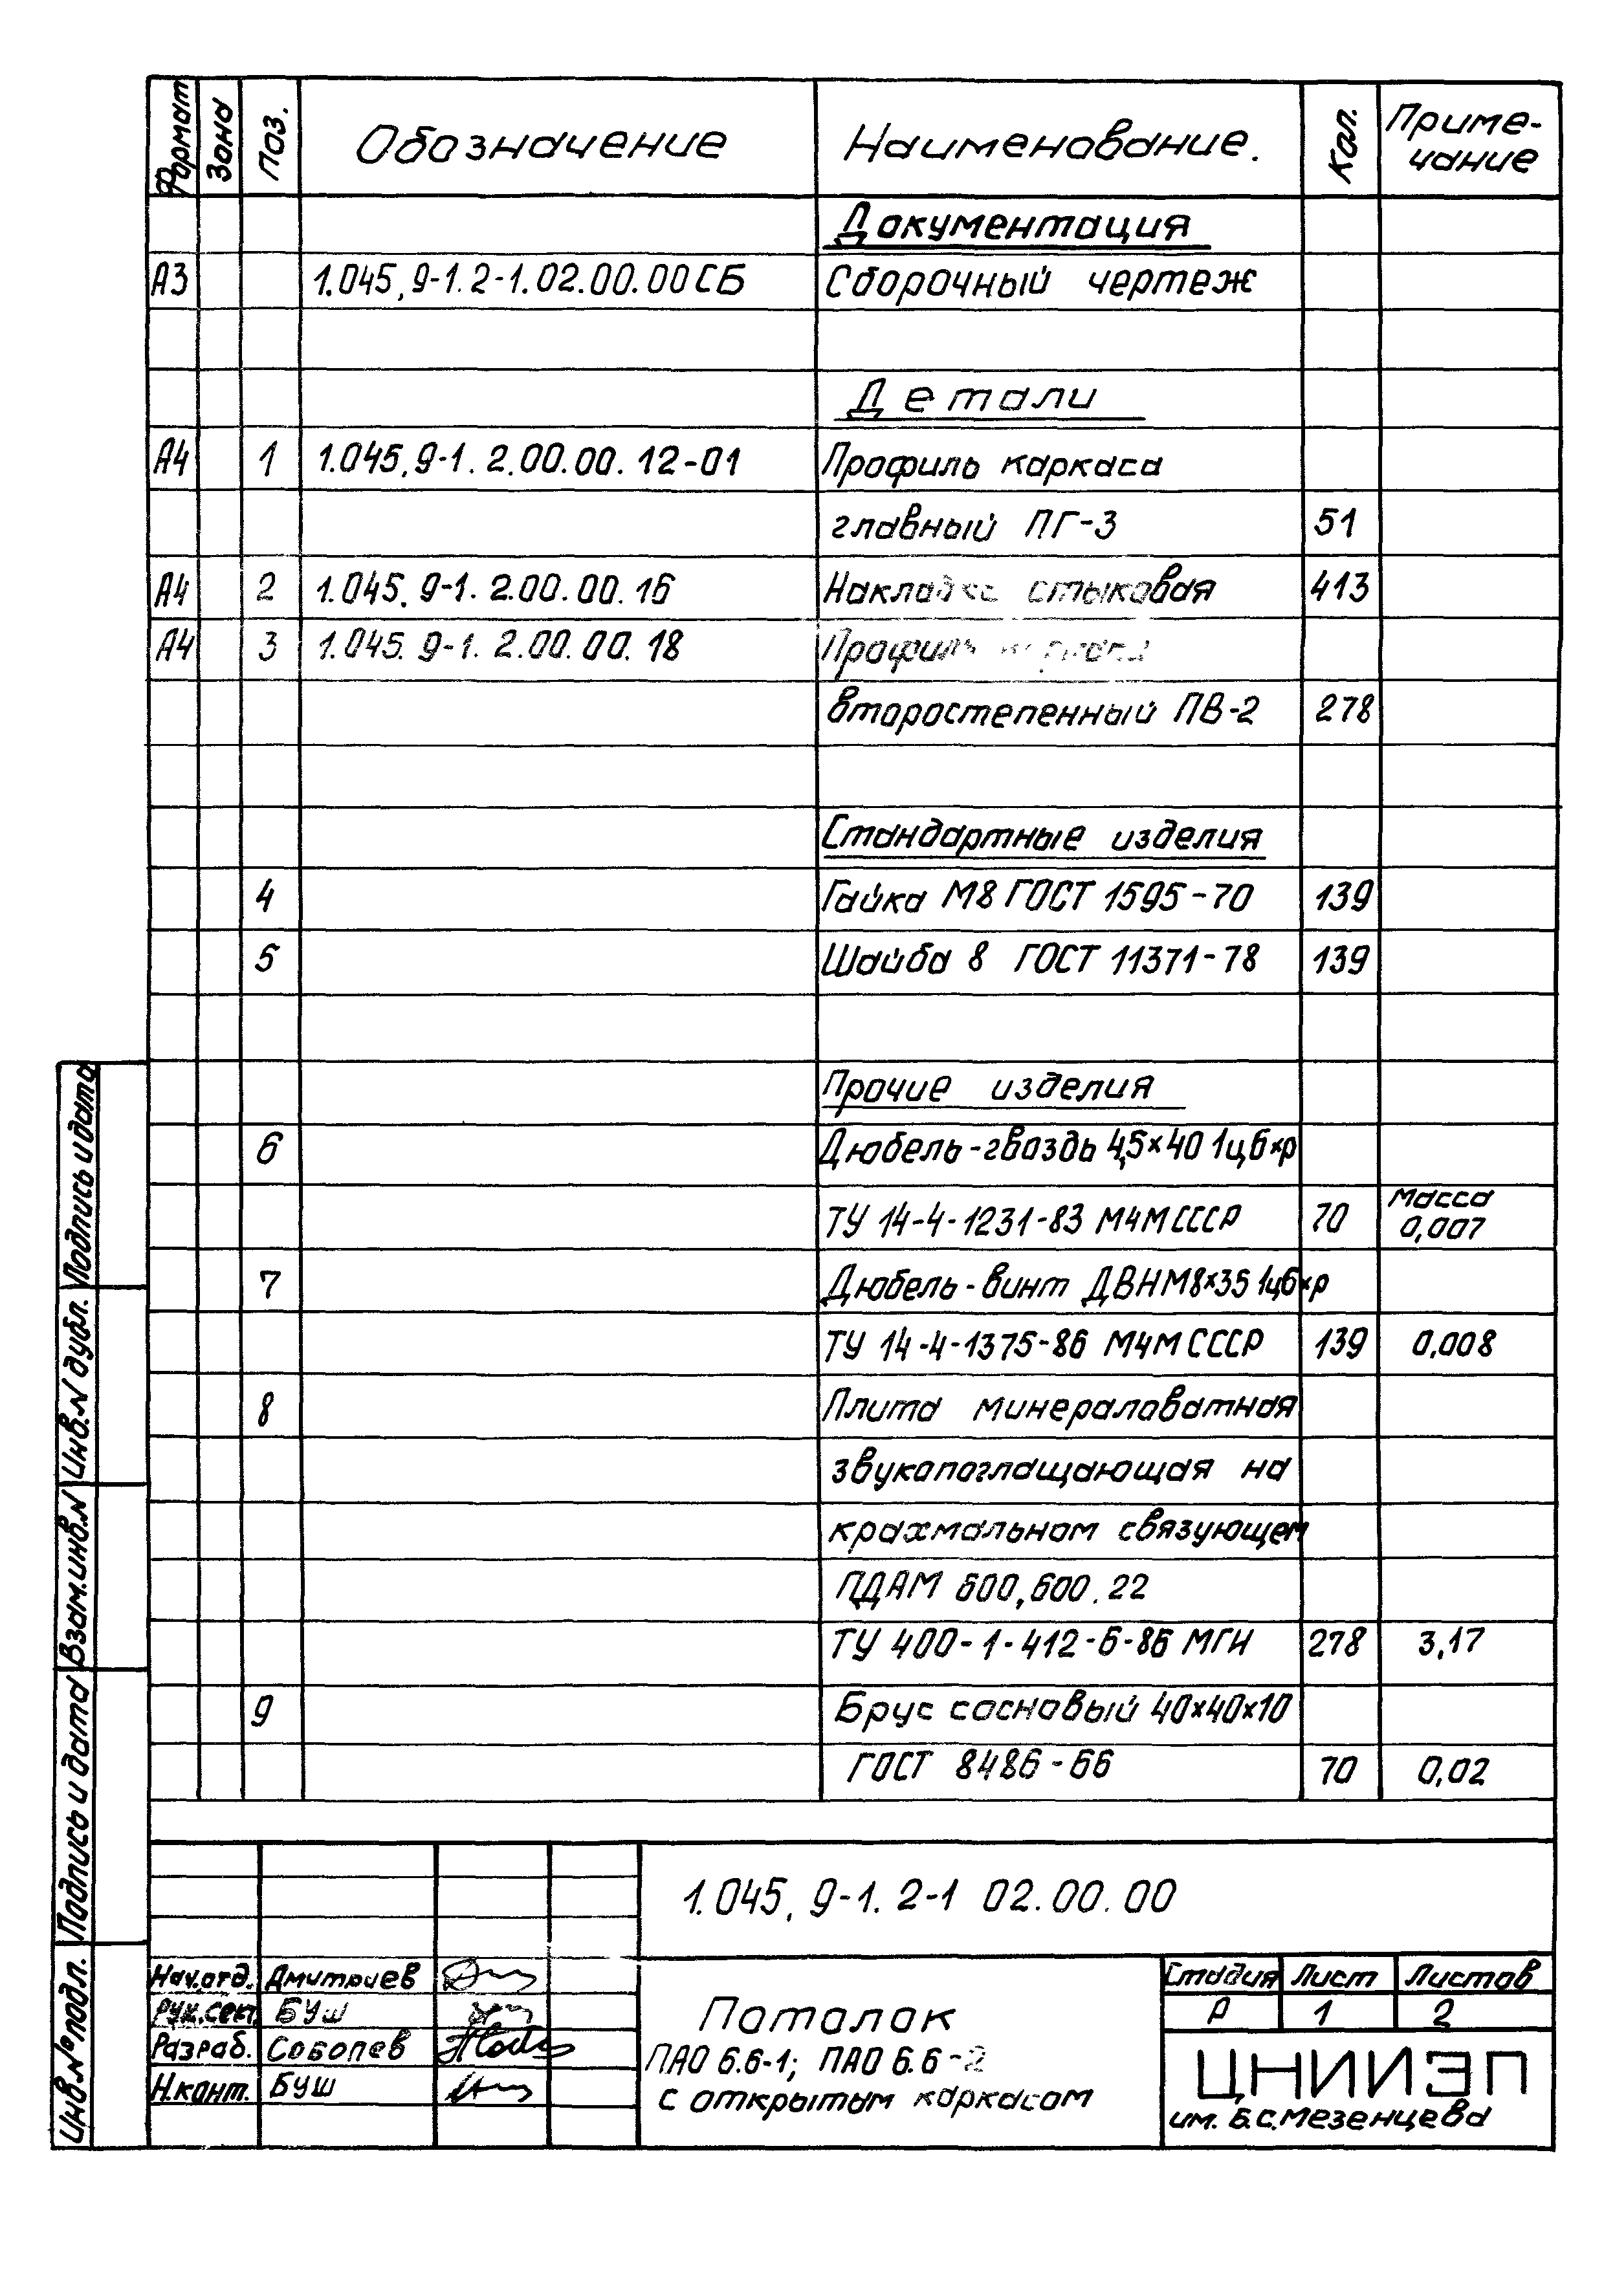 Формат Зона Поз. Обозначение Наименование. Кол. Приме-
чание
Документация
А3 1.045.9-1.2-1.02.00.00СБ Сборочный чертеж
Детали
А4 1 1.045.9-1.2.00.00.12-01 Профиль каркаса
главный ПГ-3 51
А4 2 1.045.9-1.2.00.00.16 Накладка стыковая 413
А4 3 1.045.9-1.2.00.00.18 Профиль
второстепенный ПВ-2 278
Стандартные изделия
4 Гайка М8 ГОСТ 1595-70 139
5 Шайба 8 ГОСТ 11371-78 139
Прочие изделия
6 Дюбель-гвоздь 4,5×40 1ц6хр
ТУ 14-4-1231-83 МЧМ СССР 70 Масса
0,007
7 Дюбель-винт ДВНМ8×35 1ц6хр
ТУ 14-4-1375-86 МЧМ СССР 139 0,008
8 Плита минераловатная
звукопоглащающая на
крахмальном связующем
ПДАМ 600,600.22
ТУ 400-1-412-6-86 МГИ 278 3,17
9 Брус сосновый 40×40×10
ГОСТ 8486-66 70 0,02
1.045.9-1.2-1 02.00.00
Нач.отд. Дмитриев
Рук.сект. Буш
Разраб. Соболев
Н.конт. Буш
Потолок
ПАО 6.6-1; ПАО 6.6-2
с открытым каркасом
Стадия Лист Листов
Р 1 2
ЦНИИЭП
им. Б.С.Мезенцева
Подпись и дата
Инв.N дубл.
Взам.инв.N
Подпись и дата
Инв.№ подл.